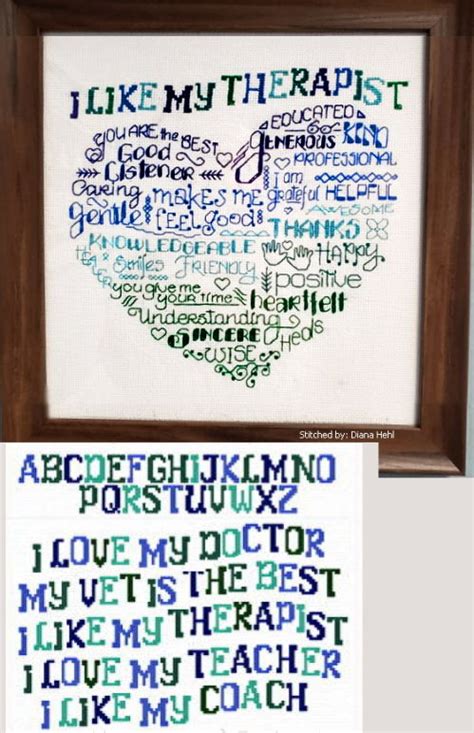 I LIKE MY THERAPIST
EDUCATED
YOU ARE the BEST
GENEROUS KIND
Good
PROFESSIONAL
Listener
I am
Caring makes me grateful HELPFUL
Gentle FEEL GOOD! AWESOME
THANKS
KNOWLEDGEABLE
HEALER Smiles FRIENDLY Happy
positive
you give me
your time heartfelt
Understanding
SINCERE Heds
WISE
Stitched by: Diana Hehl
ABCDEFGHIJKLMNO
PQRSTUVWXZ
I LOVE MY DOCTOR
MY VET IS THE BEST
I LIKE MY THERAPIST
I LOVE MY TEACHER
I LIKE MY COACH